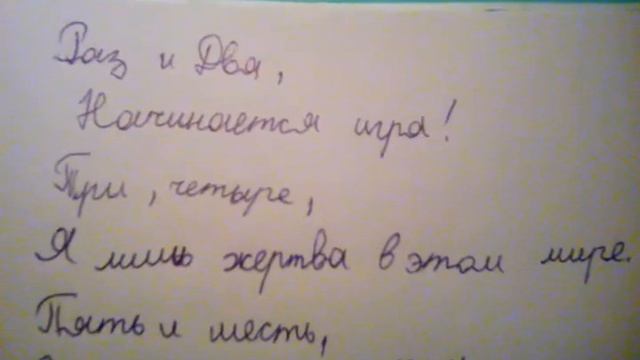 Раз и Два,
Начинается игра!
Три, четыре,
Я лишь жертва в этом мире.
Пять и шесть,